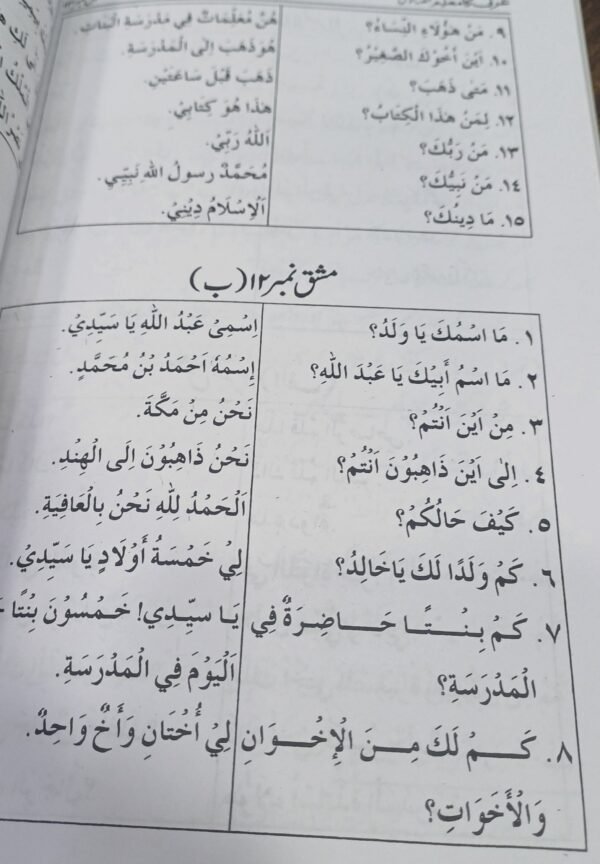 ٩. مَنْ هٰؤُلَاءِ النِّسَاءُ؟ هُنَّ مُعَلِّمَاتٌ فِي مَدْرَسَةِ الْبَنَاتِ.
١٠. اَيْنَ أَخُوْكَ الصَّغِيْرُ؟ هُوَ ذَهَبَ إِلَى الْمَدْرَسَةِ.
١١. مَتٰى ذَهَبَ؟ ذَهَبَ قَبْلَ سَاعَتَيْنِ.
١٢. لِمَنْ هٰذَا الْكِتَابُ؟ هٰذَا هُوَ كِتَابِيْ.
١٣. مَنْ رَبُّكَ؟ اَللّٰهُ رَبِّيْ.
١٤. مَنْ نَبِيُّكَ؟ مُحَمَّدٌ رسولُ اللهِ نَبِيِّي.
١٥. مَا دِينُكَ؟ اَلْاِسْلَامُ دِيْنِيْ.
مشق نمبر ١٢ (ب)
١. مَا اسْمُكَ يَا وَلَدُ؟ اِسْمِيْ عَبْدُ اللّٰهِ يَا سَيِّدِيْ.
٢. مَا اسْمُ أَبِيْكَ يَا عَبْدَ اللّٰهِ؟ إِسْمُهٗ اَحْمَدُ بْنُ مُحَمَّدٍ.
٣. مِنْ اَيْنَ اَنْتُمْ؟ نَحْنُ مِنْ مَكَّةَ.
٤. اِلٰى اَيْنَ ذَاهِبُوْنَ اَنْتُمْ؟ نَحْنُ ذَاهِبُوْنَ اِلَى الْهِنْدِ.
٥. كَيْفَ حَالُكُمْ؟ اَلْحَمْدُ لِلّٰهِ نَحْنُ بِالْعَافِيَةِ.
٦. كَمْ وَلَدًا لَكَ يَاخَالِدُ؟ لِيْ خَمْسَةُ أَوْلَادٍ يَا سَيِّدِيْ.
٧. كَمْ بِنْتًا حَاضِرَةٌ فِي يَا سَيِّدِي! خَمْسُوْنَ بِنْتًا
الْمَدْرَسَةِ؟ اَلْيَوْمَ فِي الْمَدْرَسَةِ.
٨. كَمْ لَكَ مِنَ الْإِخْوَانِ لِيْ أُخْتَانِ وَأَخٌ وَاحِدٌ.
وَالْأَخَوَاتِ؟